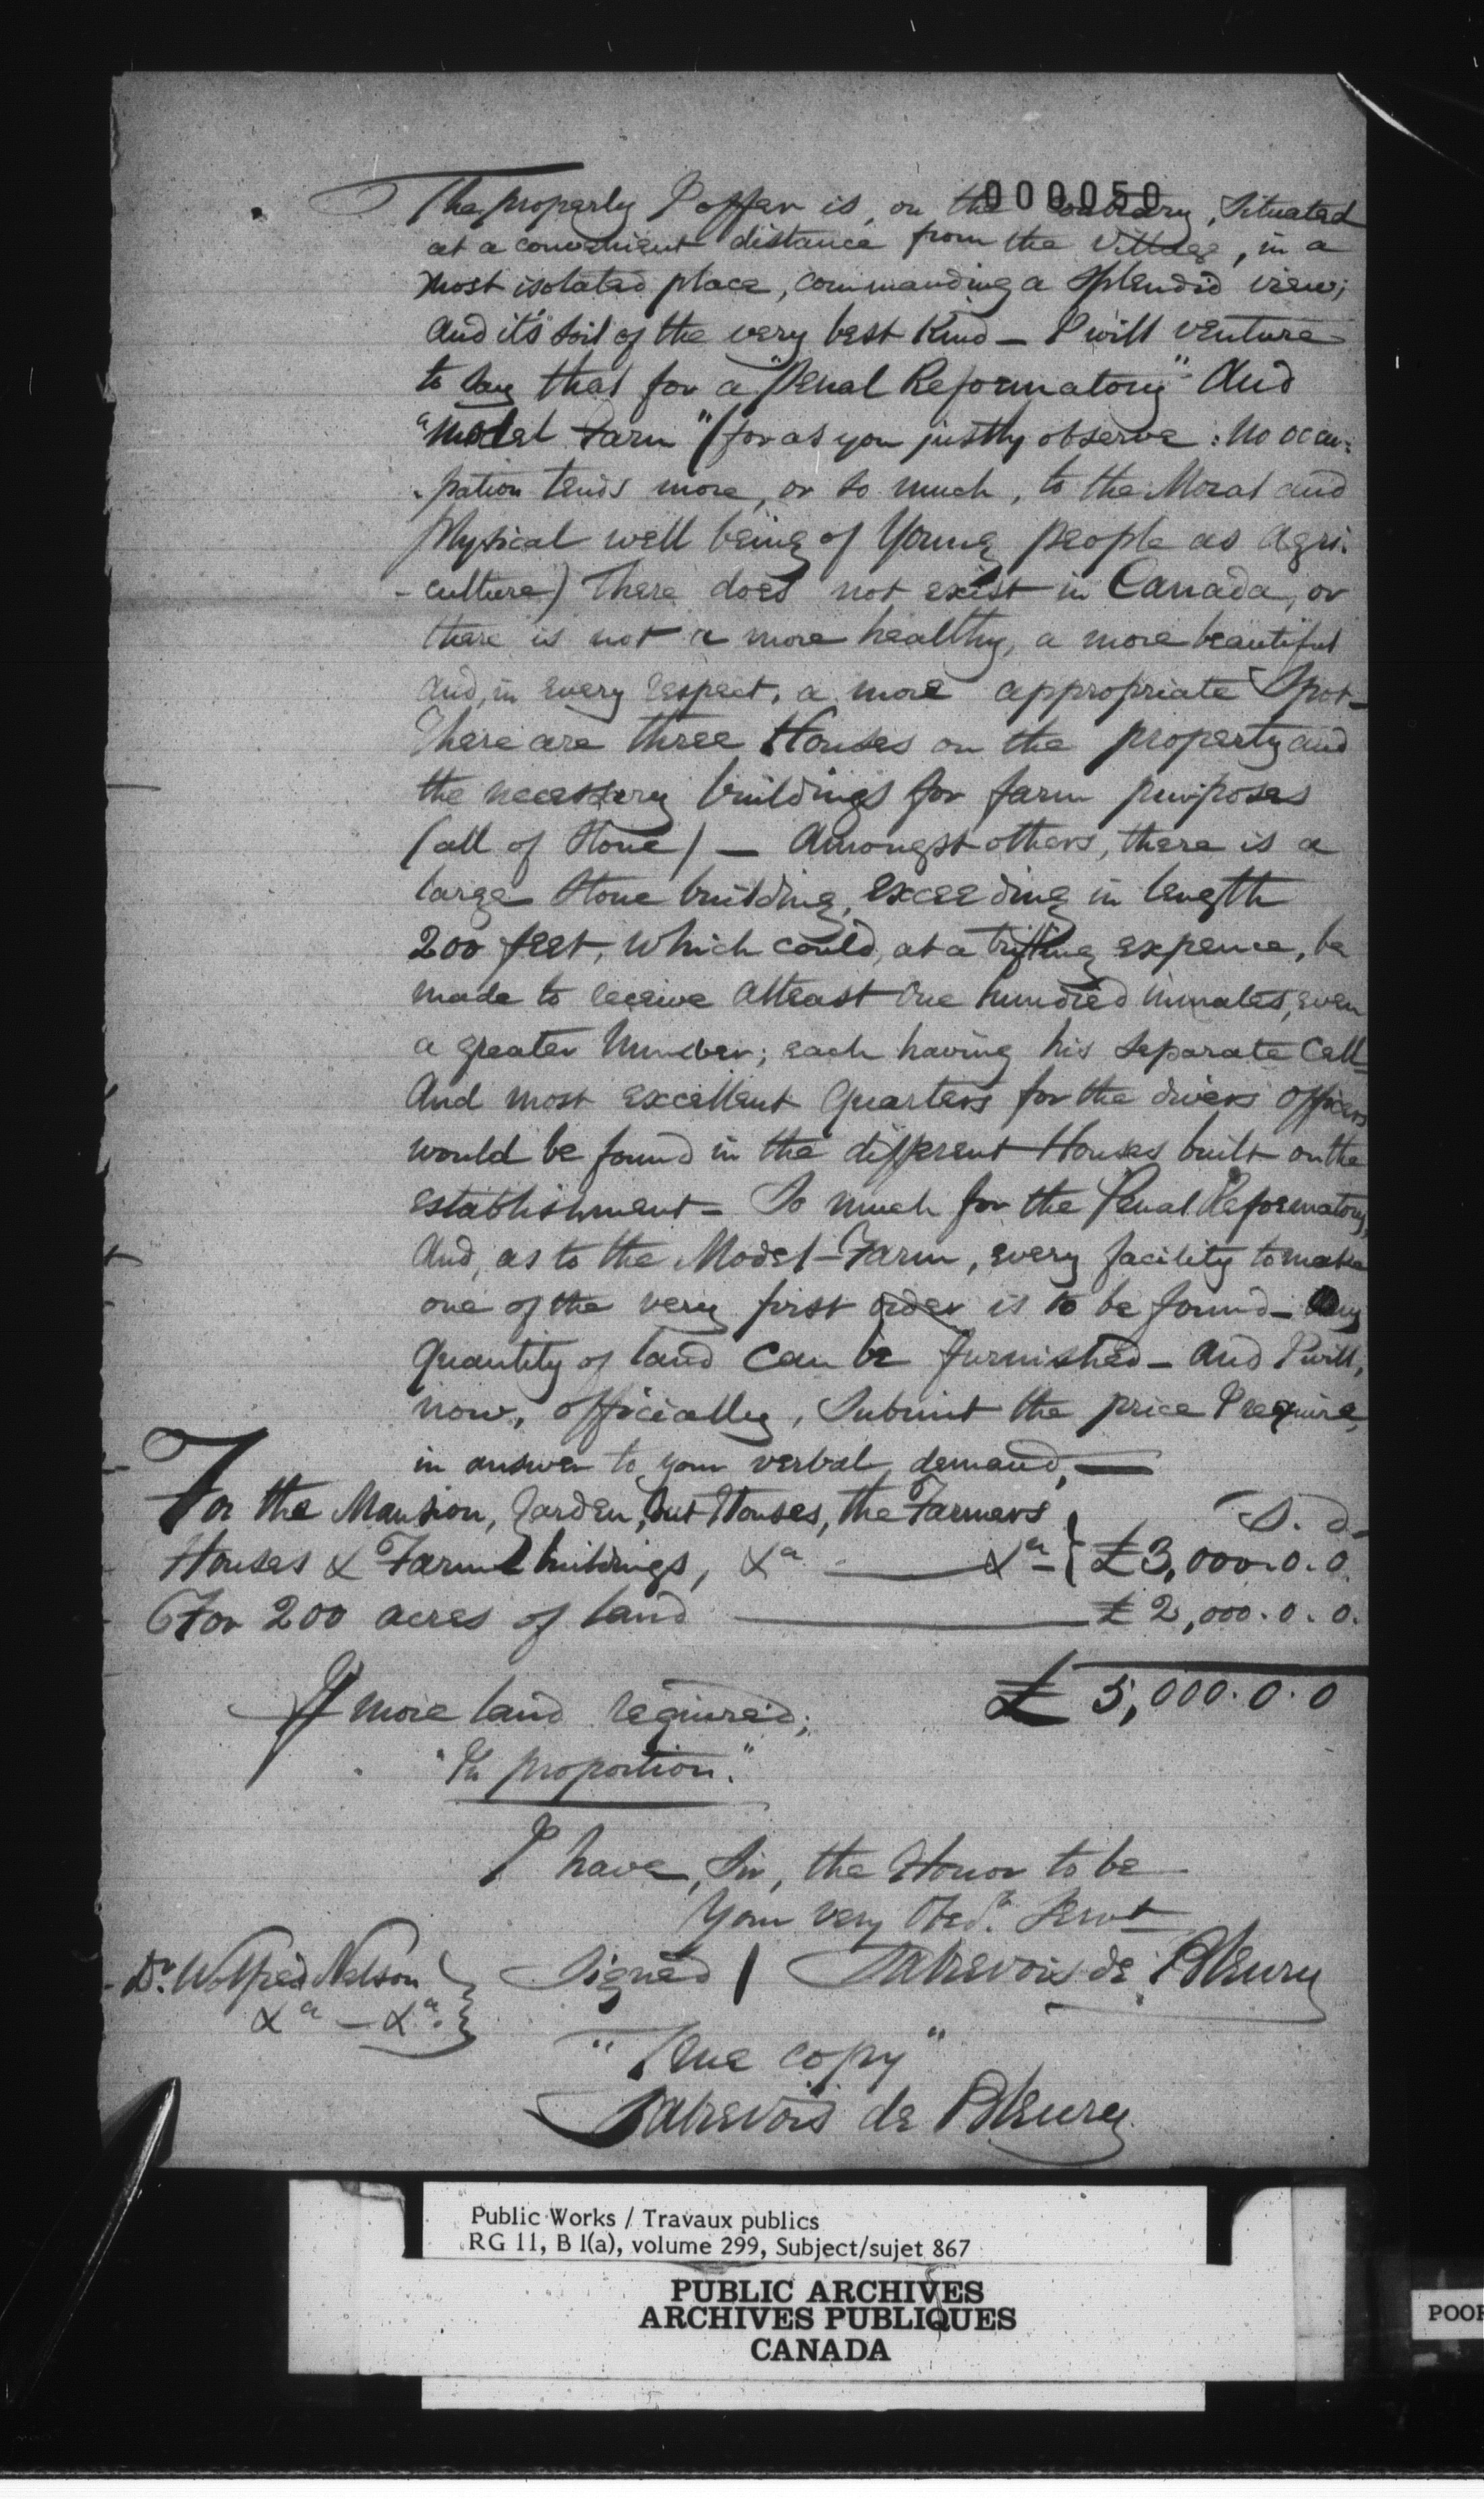 000050
The property I offer is, on the contrary, Situated
at a convenient distance from the Village, in a
most isolated place, commanding a splendid view;
and it's soil of the very best Kind — I will venture
to say that for a "Penal Reformatory" And
"Model Farm" (for as you justly observe: no occu-
-pation tends more, or so much, to the Moral and
physical well being of Young people as Agri-
-culture) There does not exist in Canada, or
there is not a more healthy, a more beautiful
and, in every respect, a more appropriate Spot —
There are three Houses on the property and
the necessary buildings for farm purposes
(all of Stone) — Amongst others, there is a
large Stone building, exceeding in length
200 feet, which could, at a trifling expence, be
made to receive atleast One hundred inmates, even
a greater Number; each having his separate Cell —
And most excellent Quarters for the divers officers
would be found in the different Houses built on the
establishment — So much for the Penal Reformatory,
And, as to the Model-Farm, every facility to make
one of the very first order is to be found — Any
Quantity of land can be furnished — And I will,
now, officially, Submit the price I require,
in answer to your verbal demand, —
For the Mansion, Garden, Out Houses, the Farmers } S. d.
Houses & Farm buildings, &a — &a — } £3,000.0.0.
For 200 acres of land — £2,000.0.0.
If more land required; £5,000.0.0
"In proportion."
I have, Sir, the Honor to be
Your very Obedt. Servt
Dr. Wolfred Nelson } Signed / Sabrevois de Bleury
&a — &a. }
"True copy"
Sabrevois de Bleury
Public Works / Travaux publics
RG 11, B 1(a), volume 299, Subject/sujet 867
PUBLIC ARCHIVES
ARCHIVES PUBLIQUES
CANADA